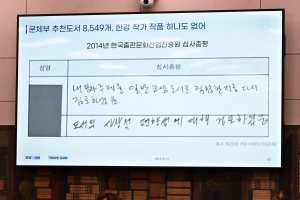 문체부 추천도서 8,549개, 한강 작가 작품 하나도 없어
2014년 한국출판문화산업진흥원 심사총평
성명
심사총평
내부 주제를 일반 교양도서로 적합한지를 다시
검토하였음
도서의 사상적 편향성에 대해 검토하였음